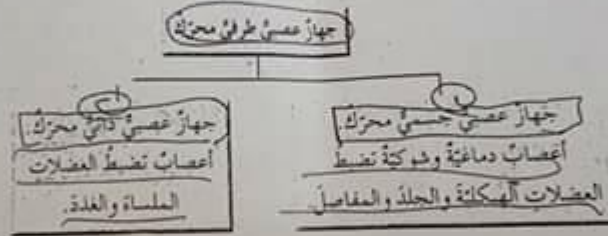 جهازٌ عصبيٌّ طرفيٌّ محرّكٌ
جهازٌ عصبيٌّ جسميٌّ محرّكٌ.
أعصابٌ دماغيّةٌ وشوكيّةٌ تضبط
العضلاتِ الهيكليّةَ والجلدَ والمفاصلَ.
جهازٌ عصبيٌّ ذاتيٌّ محرّكٌ.
أعصابٌ تضبطُ العضلاتِ
الملساءَ والغدةَ.